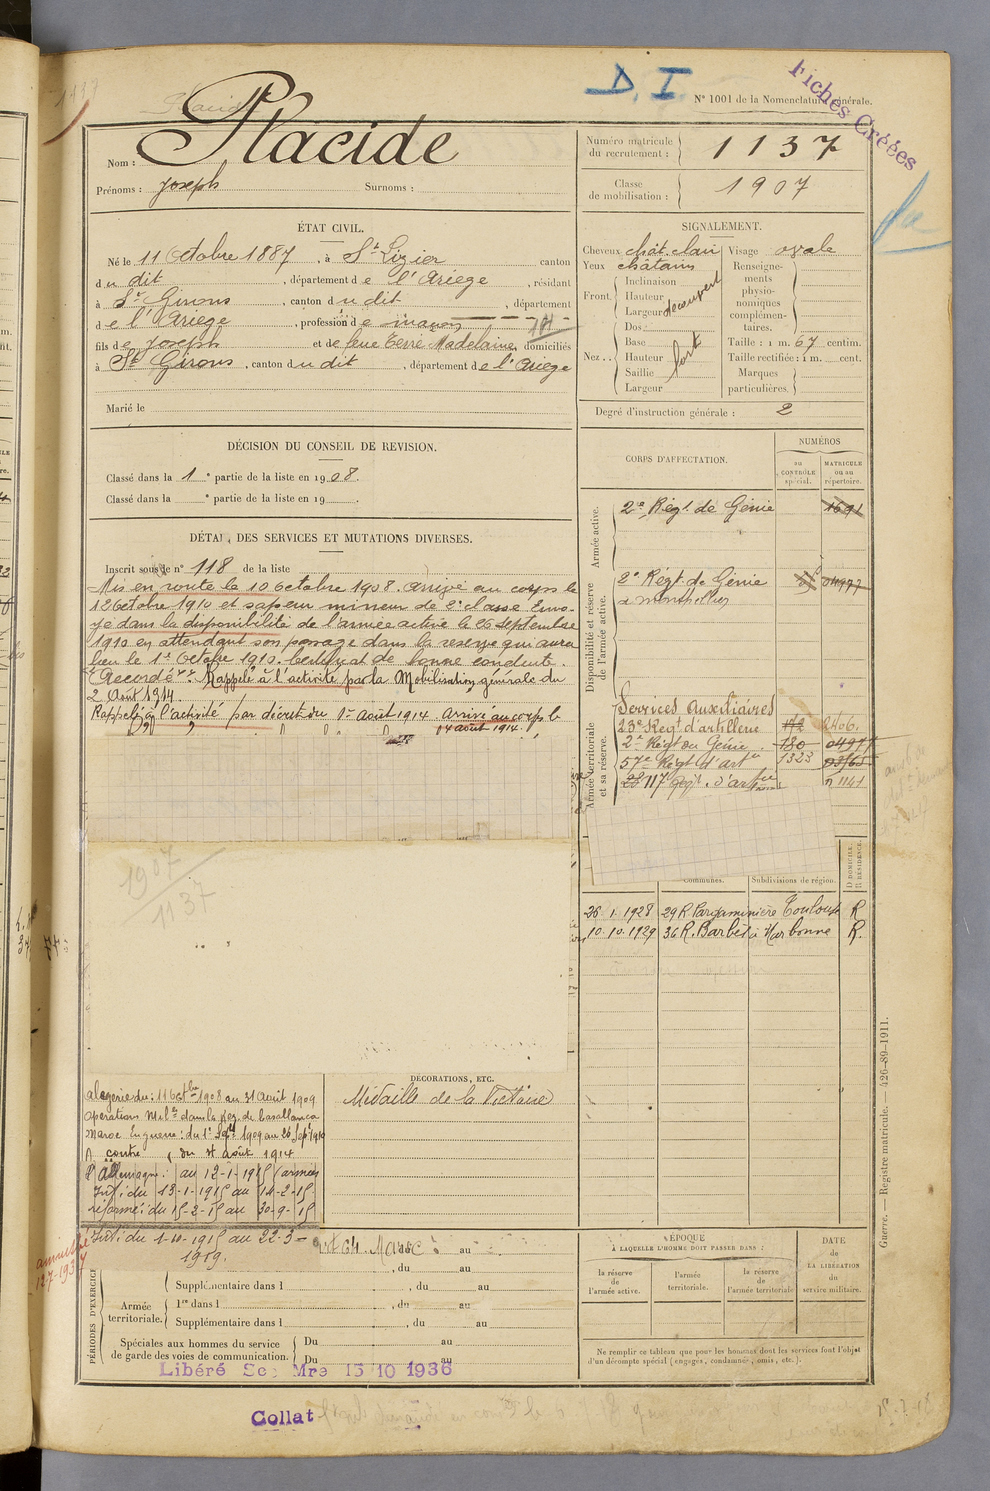 D. I
N° 1001 de la Nomenclature générale.
Fiches Créées
Placide
Nom : Placide
Prénoms : Joseph Surnoms :
Numéro matricule du recrutement : 1137
Classe de mobilisation : 1907
ÉTAT CIVIL.
Né le 11 Octobre 1887, à St Lizier canton
du dit, département de l'Ariège, résidant
à St Girons, canton du dit, département
de l'Ariège, profession de maçon
fils de Joseph et de feue Terré Madelaine, domiciliés
à St Girons, canton du dit, département de l'Ariège
Marié le
SIGNALEMENT.
Cheveux chât. clair Visage ovale
Yeux châtains
Front. Inclinaison
Hauteur
Largeur découvert
Nez.. Dos
Base
Hauteur fort
Saillie
Largeur
Renseignements physionomiques complémentaires.
Taille : 1 m. 67 centim.
Taille rectifiée : 1 m. cent.
Marques particulières.
Degré d'instruction générale : 2
DÉCISION DU CONSEIL DE REVISION.
Classé dans la 1e partie de la liste en 1908.
Classé dans la e partie de la liste en 19 .
DÉTAIL DES SERVICES ET MUTATIONS DIVERSES.
Inscrit sous le n° 118 de la liste
Mis en route le 10 Octobre 1908. Arrivé au corps le
12 Octobre 1910 et sapeur mineur de 2e classe Envo-
yé dans la disponibilité de l'armée active le 26 Septembre
1910 en attendant son passage dans la réserve qui aura
lieu le 1er Octobre 1910. Certificat de bonne conduite.
"Accordé". Rappelé à l'activité par la Mobilisation générale du
2 Août 1914.
Rappelé à l'activité par décret du 1er août 1914. Arrivé au corps le
04 août 1914.
1907
1137
CORPS D'AFFECTATION.
NUMÉROS
au CONTRÔLE spécial.
MATRICULE ou au répertoire.
Armée active.
2e Régt. de Génie 1691
Disponibilité et réserve de l'armée active.
2e Régt. de Génie 04977
à Montpellier
Armée territoriale et sa réserve.
Services Auxiliaires
23e Régt d'artillerie 172 2406.
2e Régt du Génie 180 04977
57e Régt d'art 1323 03765
117 Régt. d'art n 1141
Communes. Subdivisions de région. D DOMICILE. R RÉSIDENCE.
26 1 1928 29 R. Pargaminière Toulouse R
10. 10. 1929 36 R. Barbès à Narbonne R.
Algérie du : 11 Octbre 1908 au 31 Août 1909
Opérations Milres dans la Rég. de Casablanca
Maroc En guerre : du 1er Sept 1909 au 26 Sept 1910
A contre du 4 août 1914
l'Allemagne : au 12-1-1915 (armées
Int: du 13-1-1915 au 14-2-15.
réformé : du 15-2-15 au 30-9-15
Int: du 1-10-1915 au 22-3-
1919.
DÉCORATIONS, ETC.
Médaille de la Victoire
Maroc
, du au
Supplémentaire dans l , du au
PÉRIODES D'EXERCICES
Armée territoriale. 1re dans l , du au
Supplémentaire dans l , du au
Spéciales aux hommes du service de garde des voies de communication. Du au
Du au
ÉPOQUE
À LAQUELLE L'HOMME DOIT PASSER DANS :
la réserve de l'armée active.
l'armée territoriale.
la réserve de l'armée territoriale
DATE DE LA LIBÉRATION du service militaire.
Ne remplir ce tableau que pour les hommes dont les services font l'objet
d'un décompte spécial (engagés, condamnés, omis, etc.).
Guerre. — Registre matricule. — 426-89-1911.
Libéré Sce Mre 15 10 1936
Collat